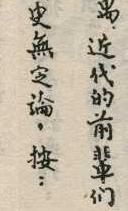 禺，近代的前輩们
史無定論，按：